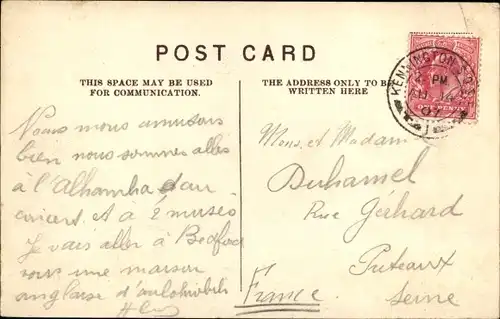 POST CARD
THIS SPACE MAY BE USED
FOR COMMUNICATION.
THE ADDRESS ONLY TO BE
WRITTEN HERE
KENNINGTON
PM
PENNY
Nous nous amusons
bien nous sommes allés
à l'Alhambra d'au
concert et à 2 musées
Je vais aller à Bedford
une maison
anglaise d'automobiles
Mons. et Madame
Duhamel
Rue Gérhard
Puteaux
Seine
France